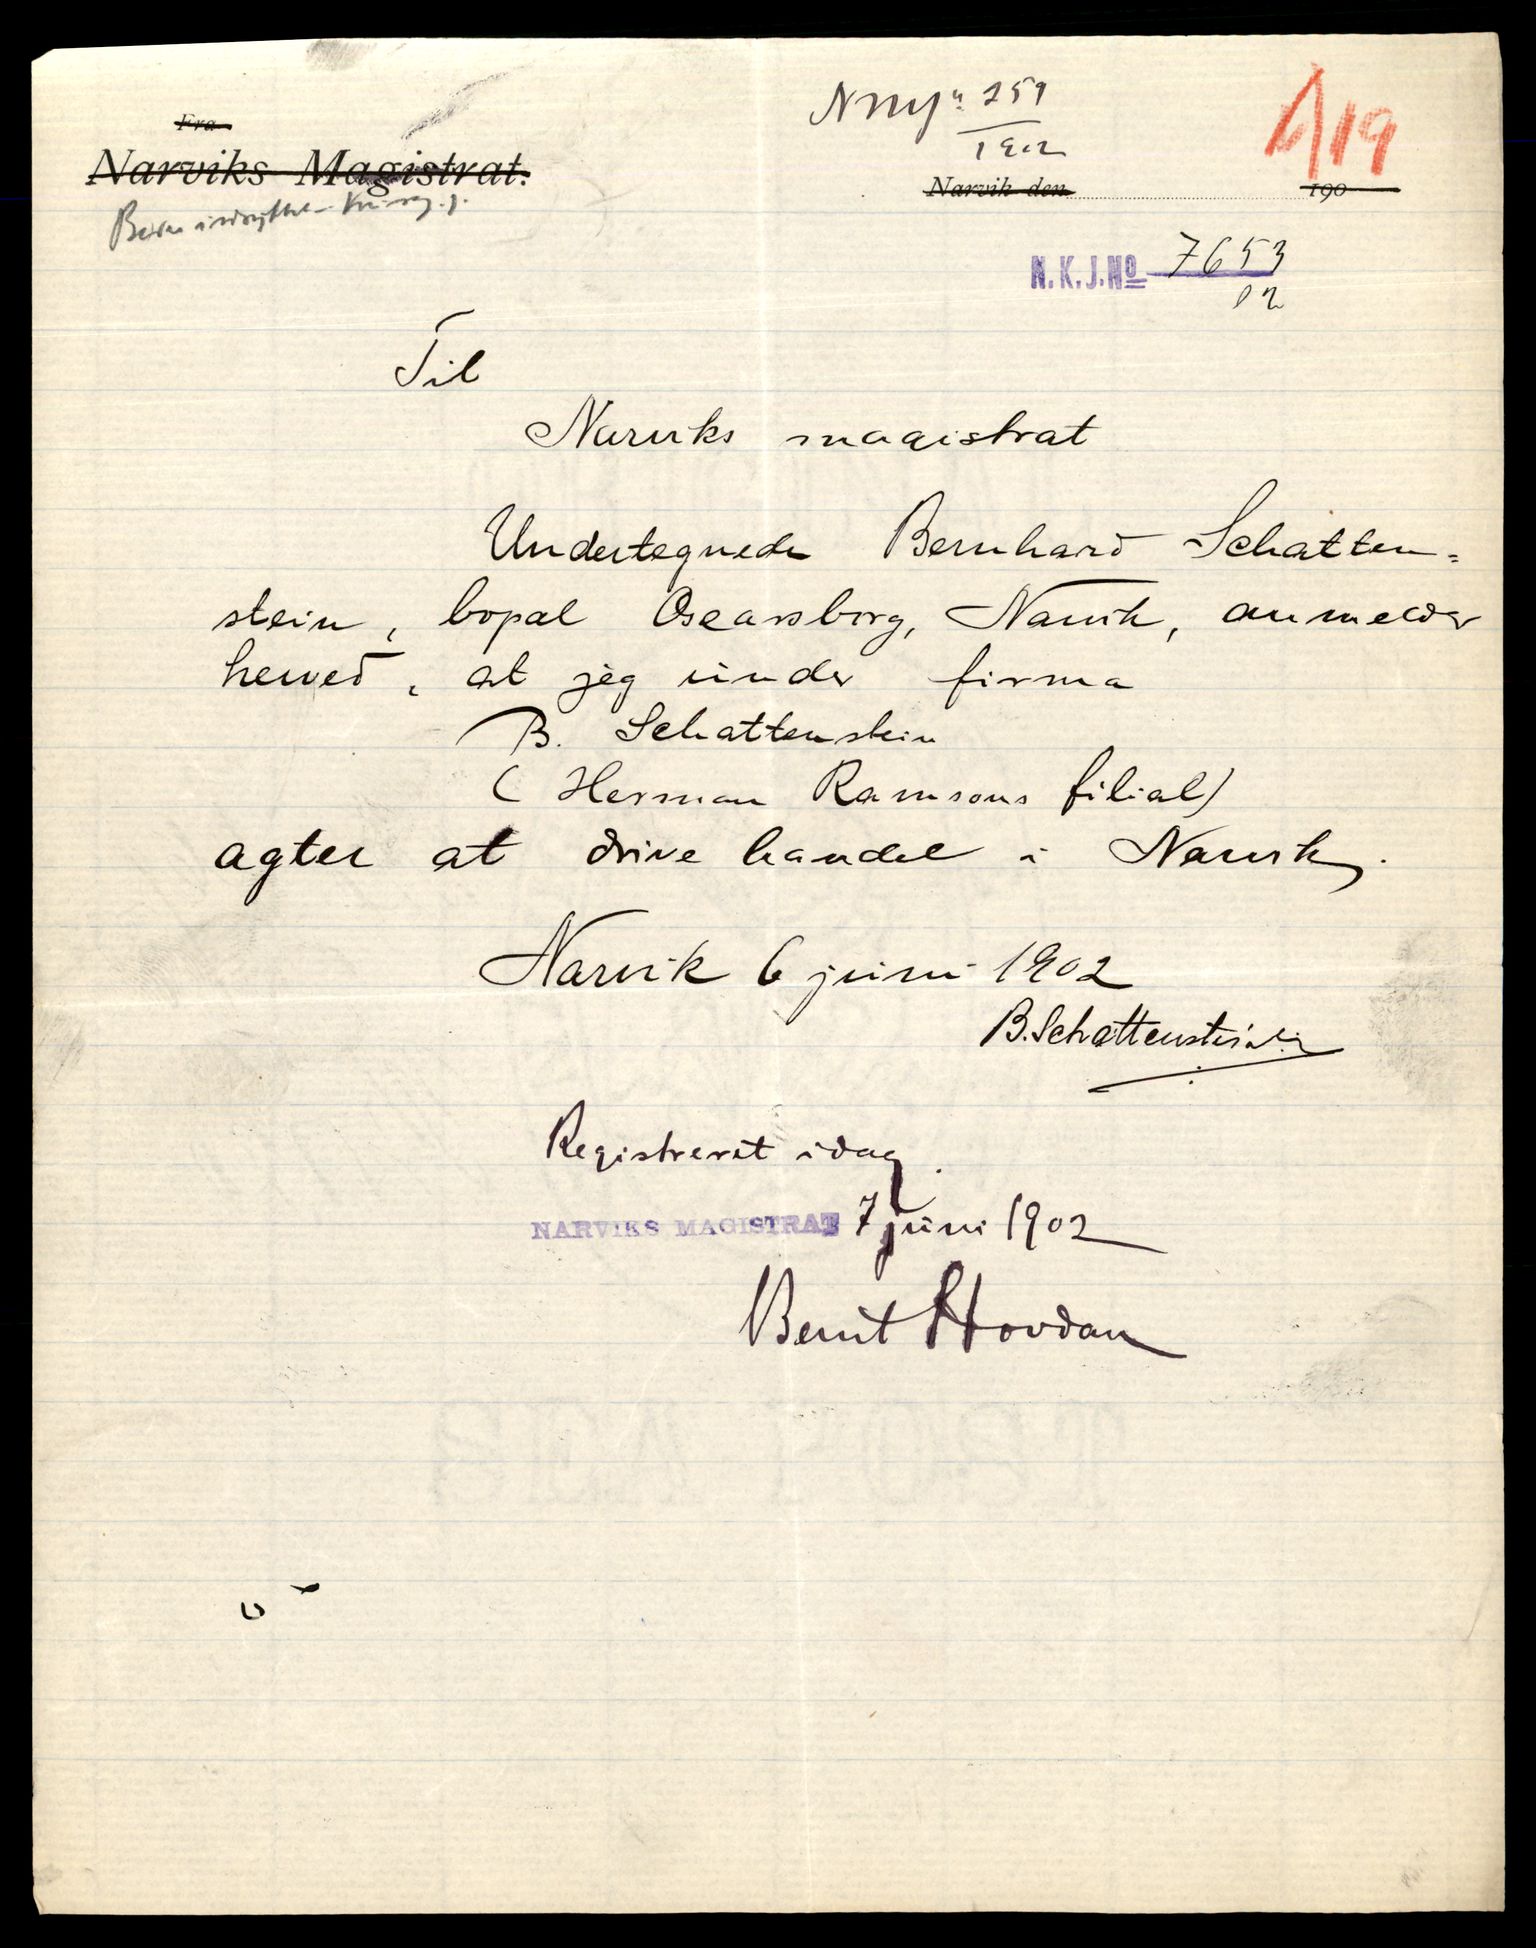 Fra
Narviks Magistrat.
N my n 259
1902
A19
Narvik den 190
N.K.J.No 7653
02
Til
Narviks magistrat
Undertegnede Bernhard Schatten=
stein, bopæl Oscarsborg, Narvik, anmelder
herved, at jeg under firma
B. Schattenstein
(Herman Ramsons filial)
agter at drive handel i Narvik.
Narvik 6 juni 1902
B. Schattenstein
Registreret idag.
NARVIKS MAGISTRAT 7 juni 1902
Bernt Hovdan